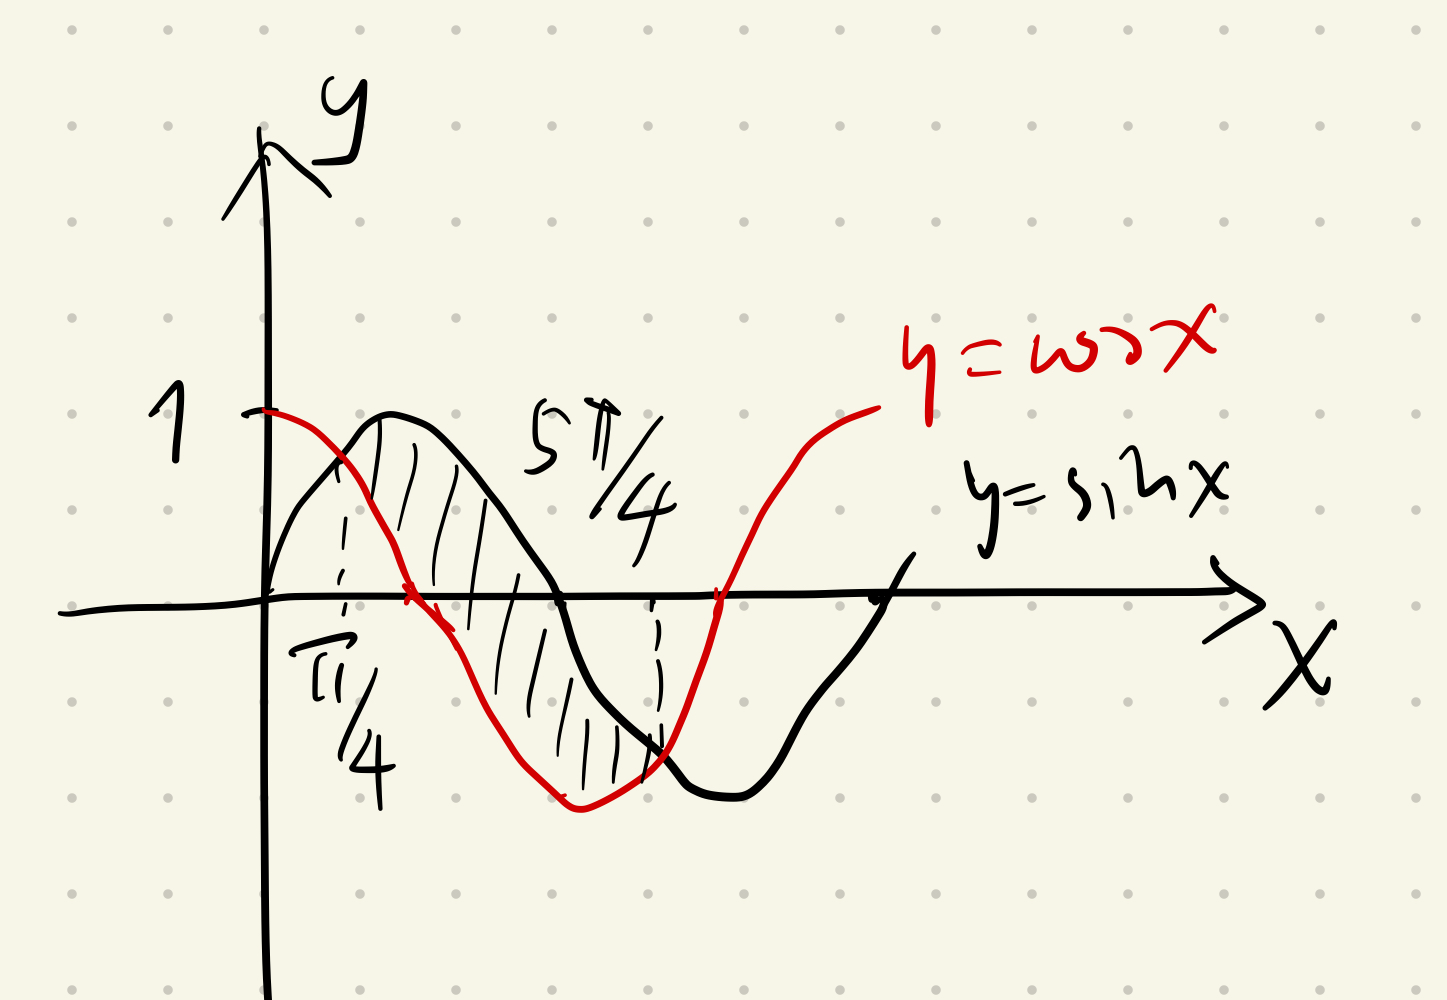 y
1
y = cos x
5π/4
y = sin x
π/4
x